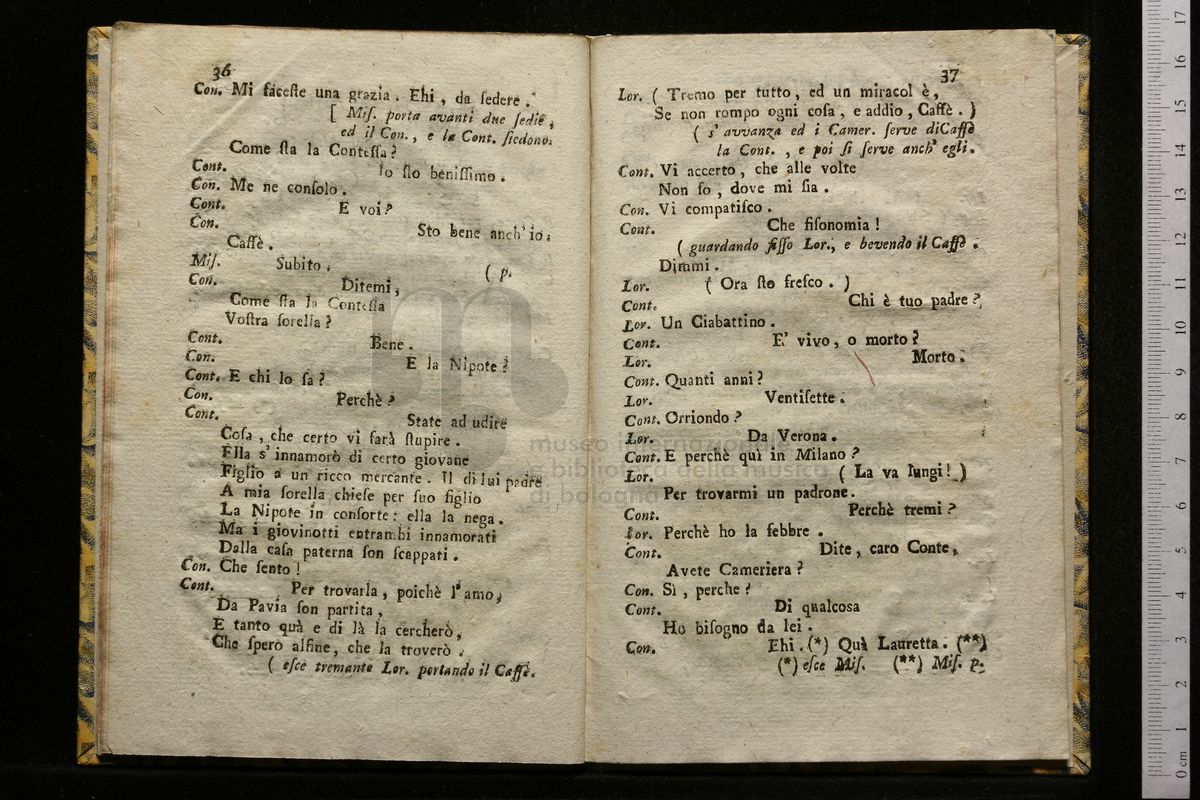 36
Con. Mi faceſte una grazia. Ehi, da ſedere.
[ Miſ. porta avanti due ſedie,
ed il Con., e la Cont. ſiedono.
Come ſta la Conteſſa?
Cont. Io ſto beniſſimo.
Con. Me ne conſolo.
Cont. E voi?
Con. Sto bene anch'io.
Caffè.
Miſ. Subito. ( p.
Con. Ditemi,
Come ſta la Conteſſa
Voſtra ſorella?
Cont. Bene.
Con. E la Nipote?
Cont. E chi lo ſa?
Con. Perchè?
Cont. State ad udire
Coſa, che certo vi farà ſtupire.
Ella s'innamorò di certo giovane
Figlio a un ricco mercante. Il di lui padre
A mia ſorella chieſe per ſuo figlio
La Nipote in conſorte: ella la nega.
Ma i giovinotti entrambi innamorati
Dalla caſa paterna ſon ſcappati.
Con. Che ſento!
Cont. Per trovarla, poichè l'amo,
Da Pavia ſon partita,
E tanto quà e di là la cercherò,
Che ſpero alfine, che la troverò.
( eſce tremante Lor. portando il Caffè.
37
Lor. ( Tremo per tutto, ed un miracol è,
Se non rompo ogni coſa, e addio, Caffè. )
( s'avvanza ed i Camer. ſerve diCaffè
la Cont., e poi ſi ſerve anch' egli.
Cont. Vi accerto, che alle volte
Non ſo, dove mi ſia.
Con. Vi compatiſco.
Cont. Che fiſonomia!
( guardando fiſſo Lor., e bevendo il Caffè.
Dimmi.
Lor. ( Ora ſto freſco. )
Cont. Chi è tuo padre?
Lor. Un Ciabattino.
Cont. E' vivo, o morto?
Lor. Morto.
Cont. Quanti anni?
Lor. Ventiſette.
Cont. Orriondo?
Lor. Da Verona.
Cont. E perchè quì in Milano?
Lor. ( La va lungi! )
Per trovarmi un padrone.
Cont. Perchè tremi?
Lor. Perchè ho la febbre.
Cont. Dite, caro Conte,
Avete Cameriera?
Con. Sì, perche?
Cont. Di qualcosa
Ho biſogno da lei.
Con. Ehi. (*) Quà Lauretta. (**)
(*) eſce Miſ. (**) Miſ. p.
museo internazionale
e biblioteca della musica
di bologna
0 cm 1 2 3 4 5 6 7 8 9 10 11 12 13 14 15 16 17